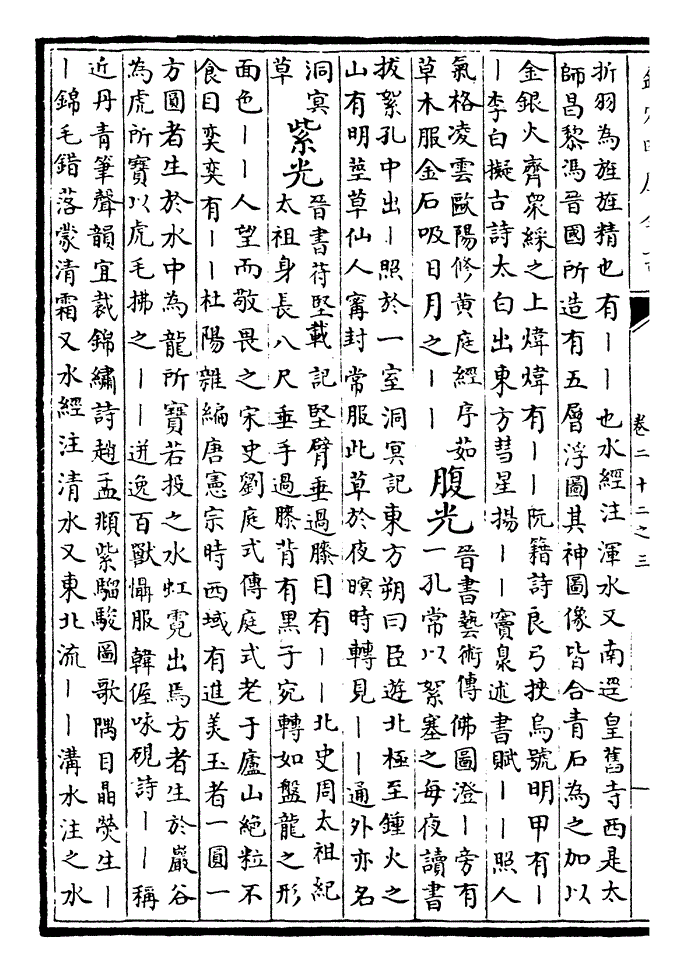 卷二十二之三
折羽為旌旌精也有丨丨也水經注渾水又南逕皇舊寺西是太
師昌黎馮晉國所造有五層浮圖其神圖像皆合青石為之加以
金銀火齊衆綵之上煒煒有丨丨阮籍詩良弓挾烏號明甲有丨
丨李白擬古詩太白出東方彗星揚丨丨竇臮述書賦丨丨照人
氣格凌雲歐陽修黄庭經序茹
草木服金石吸日月之丨丨
腹光
晉書藝術傳佛圖澄丨旁有
一孔常以絮塞之每夜讀書
拔絮孔中出丨照於一室洞冥記東方朔曰臣遊北極至鍾火之
山有明莖草仙人甯封常服此草於夜暝時轉見丨丨通外亦名
洞冥
草
紫光
晉書苻堅載記堅臂垂過膝目有丨丨北史周太祖紀
太祖身長八尺垂手過膝背有黑子宛轉如盤龍之形
面色丨丨人望而敬畏之宋史劉庭式傳庭式老于廬山絶粒不
食目奕奕有丨丨杜陽雜編唐憲宗時西域有進美玉者一圓一
方圓者生於水中為龍所寶若投之水虹霓出焉方者生於巖谷
為虎所寶以虎毛拂之丨丨迸逸百獸懾服韓偓咏硯詩丨丨稱
近丹青筆聲韻宜裁錦繡詩趙孟頫紫騮駿圖歌隅目晶熒生丨
丨錦毛錯落蒙清霜又水經注清水又東北流丨丨溝水注之水